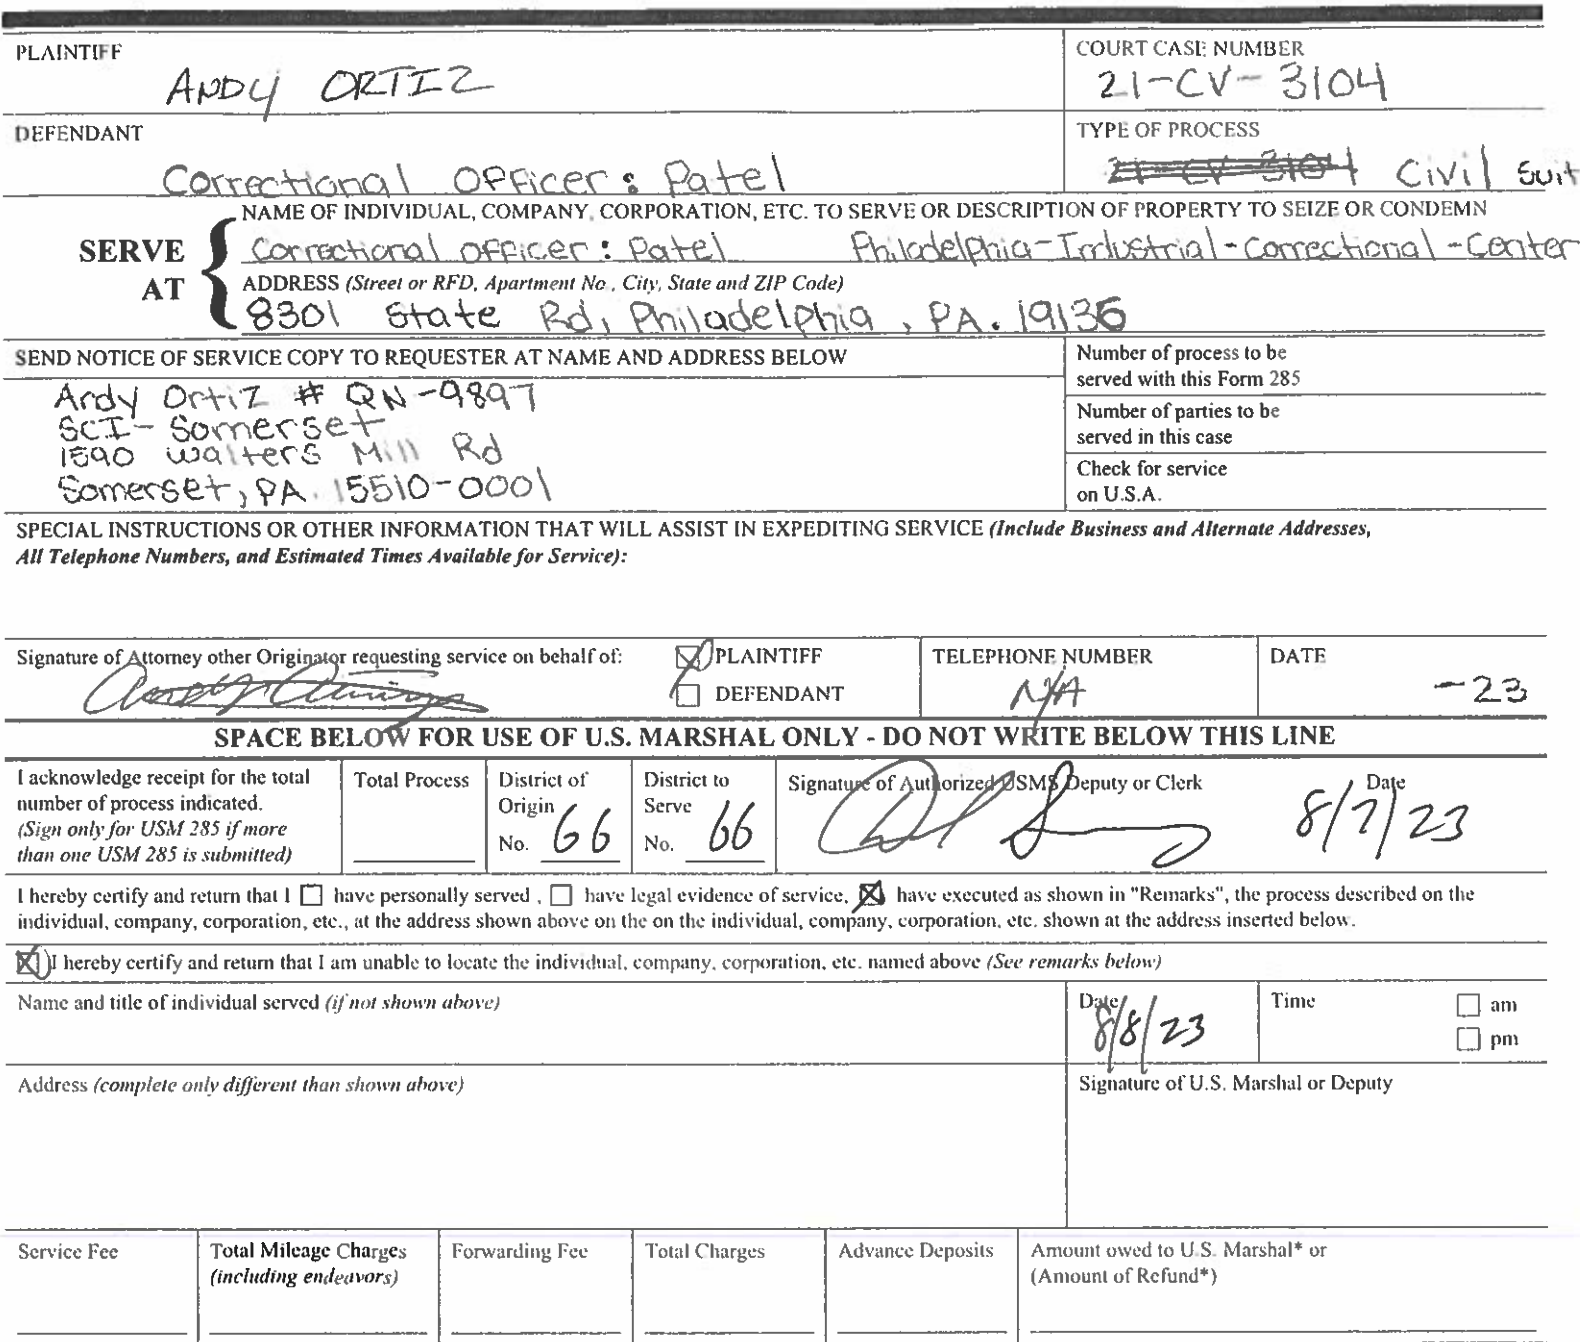 PLAINTIFF
ANDY ORTIZ
COURT CASE NUMBER
21-CV-3104
DEFENDANT
Correctional Officer: Patel
TYPE OF PROCESS
21-CV-3104 Civil Suit
SERVE AT
NAME OF INDIVIDUAL, COMPANY, CORPORATION, ETC. TO SERVE OR DESCRIPTION OF PROPERTY TO SEIZE OR CONDEMN
Correctional officer: Patel Philadelphia-Industrial-Correctional-Center
ADDRESS (Street or RFD, Apartment No., City, State and ZIP Code)
8301 State Rd, Philadelphia, PA. 19136
SEND NOTICE OF SERVICE COPY TO REQUESTER AT NAME AND ADDRESS BELOW
Andy Ortiz # QN-9897
SCI-Somerset
1590 Walters Mill Rd
Somerset, PA. 15510-0001
Number of process to be
served with this Form 285
Number of parties to be
served in this case
Check for service
on U.S.A.
SPECIAL INSTRUCTIONS OR OTHER INFORMATION THAT WILL ASSIST IN EXPEDITING SERVICE (Include Business and Alternate Addresses,
All Telephone Numbers, and Estimated Times Available for Service):
Signature of Attorney other Originator requesting service on behalf of:
PLAINTIFF
DEFENDANT
TELEPHONE NUMBER
N/A
DATE
-23
SPACE BELOW FOR USE OF U.S. MARSHAL ONLY - DO NOT WRITE BELOW THIS LINE
I acknowledge receipt for the total
number of process indicated.
(Sign only for USM 285 if more
than one USM 285 is submitted)
Total Process
District of
Origin
No. 66
District to
Serve
No. 66
Signature of Authorized USMS Deputy or Clerk
Date
8/7/23
I hereby certify and return that I have personally served, have legal evidence of service, have executed as shown in "Remarks", the process described on the
individual, company, corporation, etc., at the address shown above on the on the individual, company, corporation, etc. shown at the address inserted below.
I hereby certify and return that I am unable to locate the individual, company, corporation, etc. named above (See remarks below)
Name and title of individual served (if not shown above)
Date
8/8/23
Time
am
pm
Address (complete only different than shown above)
Signature of U.S. Marshal or Deputy
Service Fee
Total Mileage Charges
(including endeavors)
Forwarding Fee
Total Charges
Advance Deposits
Amount owed to U.S. Marshal* or
(Amount of Refund*)